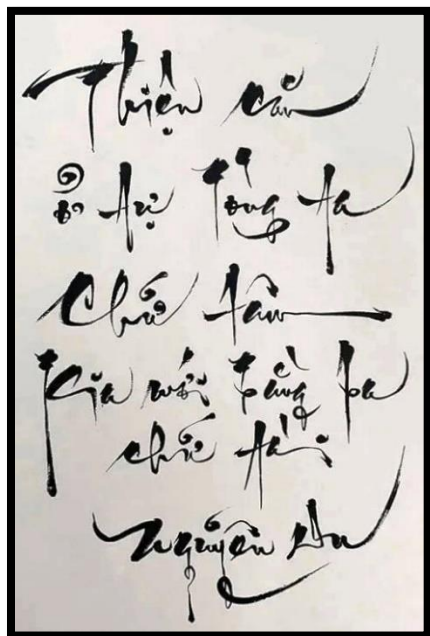 Thiện căn
ở tự lòng ta
Chữ tâm
kia mới bằng ba
chữ tài
Nguyễn Du